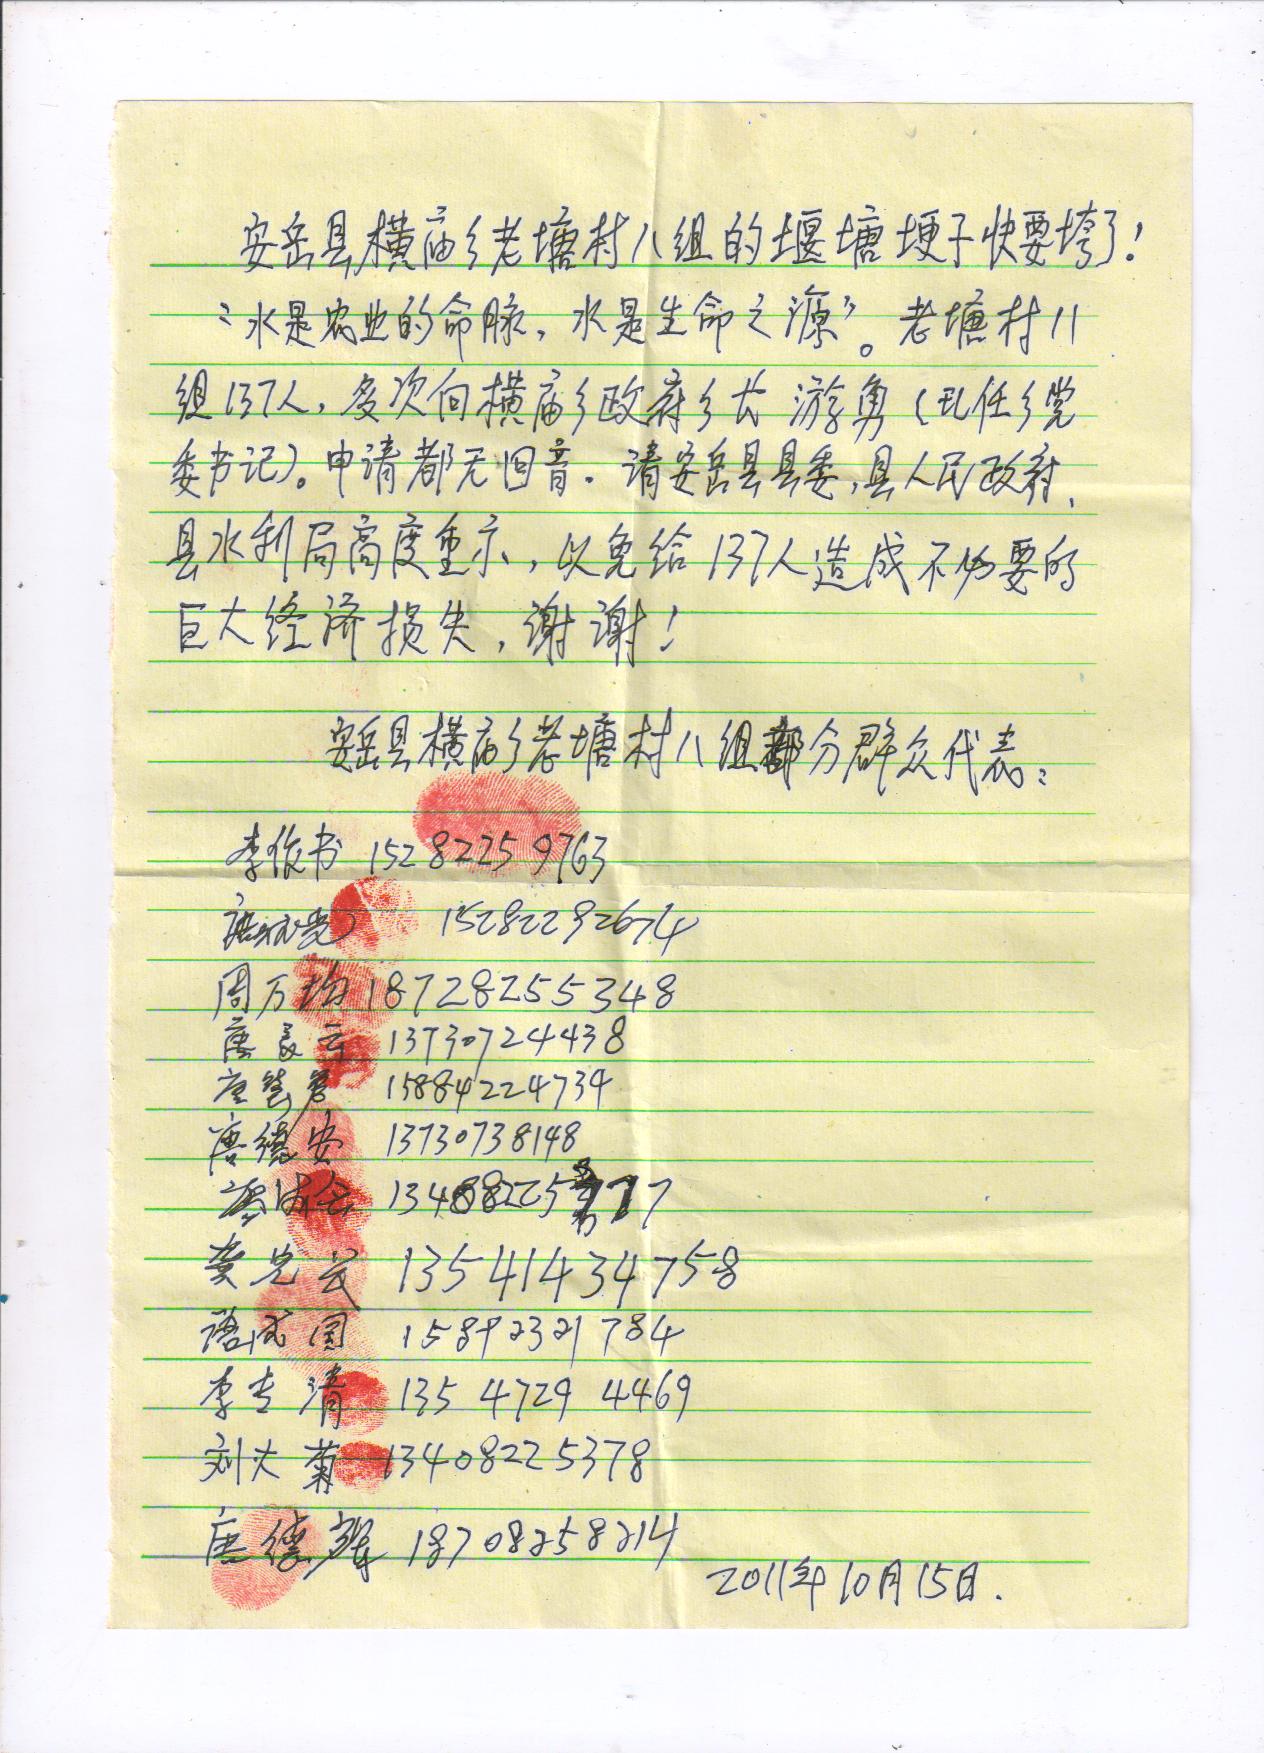 安岳县横庙乡老塘村八组的堰塘埂子快要垮了!
"水是农业的命脉,水是生命之源"。老塘村八
组137人,多次向横庙乡政府乡长游勇(现任乡党
委书记)。申请都无回音。请安岳县县委,县人民政府、
县水利局高度重示,以免给137人造成不必要的
巨大经济损失,谢谢!
安岳县横庙乡老塘村八组部分群众代表:
李俊书 15282259763
15282292674
周万均 18728255348
唐 13730724438
15884224734
唐德安 13730738148
13408225 777
龚光 13541434758
成国 15892321784
李专清 13547294469
刘大菊 13408225378
唐德辉 18708258214
2011年10月15日.